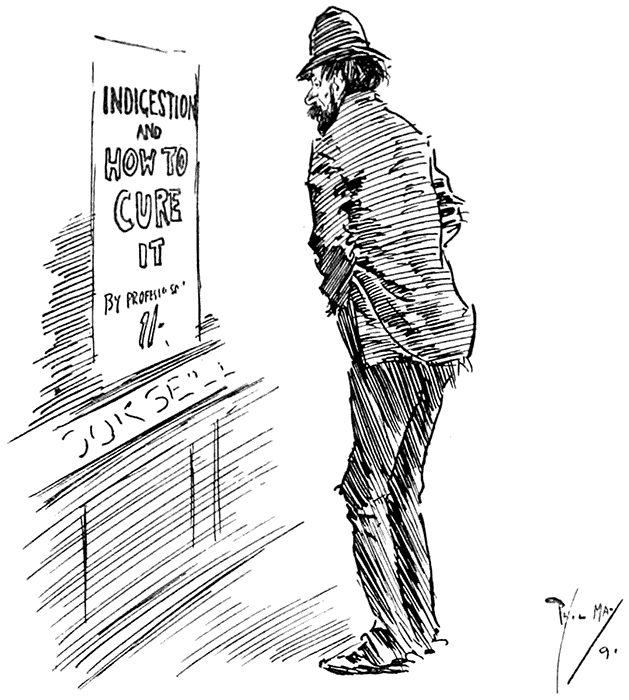 INDIGESTION
AND
HOW TO
CURE
IT
BY PROFESSOR
1/-
OOKSELL
PHIL MAY
9.